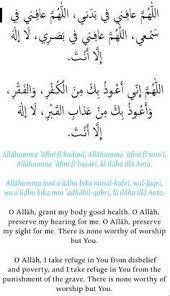 اللَّهُمَّ عَافِنِي فِي بَدَنِي، اللَّهُمَّ عَافِنِي فِي
سَمْعِي، اللَّهُمَّ عَافِنِي فِي بَصَرِي، لَا إِلَهَ
إِلَّا أَنْتَ.
اللَّهُمَّ إِنِّي أَعُوذُ بِكَ مِنَ الْكُفْرِ، وَالفَقْرِ،
وَأَعُوذُ بِكَ مِنْ عَذَابِ القَبْرِ، لَا إِلَهَ
إِلَّا أَنْتَ.
Allâhumma 'âfinî fî badanî, Allâhumma 'âfinî fî sam'î,
Allâhumma 'âfinî fî baṣarî, lâ ilâha illâ Anta.
Allâhumma innî a'ûdhu bika minal-kufri, wal-faqri,
wa a'ûdhu bika min 'adhâbil-qabri, lâ ilâha illâ Anta.
O Allâh, grant my body good health. O Allâh,
preserve my hearing for me. O Allâh, preserve
my sight for me. There is none worthy of worship
but You.
O Allâh, I take refuge in You from disbelief
and poverty, and I take refuge in You from the
punishment of the grave. There is none worthy of
worship but You.